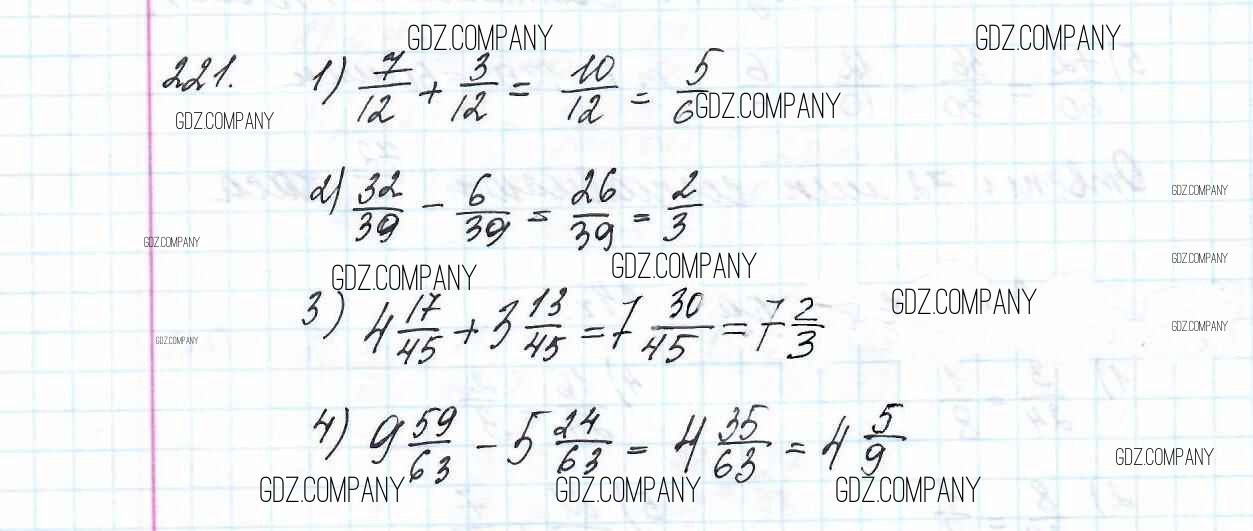 GDZ.COMPANY GDZ.COMPANY
221. 1) 7/12 + 3/12 = 10/12 = 5/6
GDZ.COMPANY GDZ.COMPANY
2) 32/39 - 6/39 = 26/39 = 2/3
GDZ.COMPANY
GDZ.COMPANY
GDZ.COMPANY
GDZ.COMPANY GDZ.COMPANY
GDZ.COMPANY
3) 4 17/45 + 3 13/45 = 7 30/45 = 7 2/3
GDZ.COMPANY
GDZ.COMPANY
4) 9 59/63 - 5 24/63 = 4 35/63 = 4 5/9
GDZ.COMPANY
GDZ.COMPANY GDZ.COMPANY GDZ.COMPANY